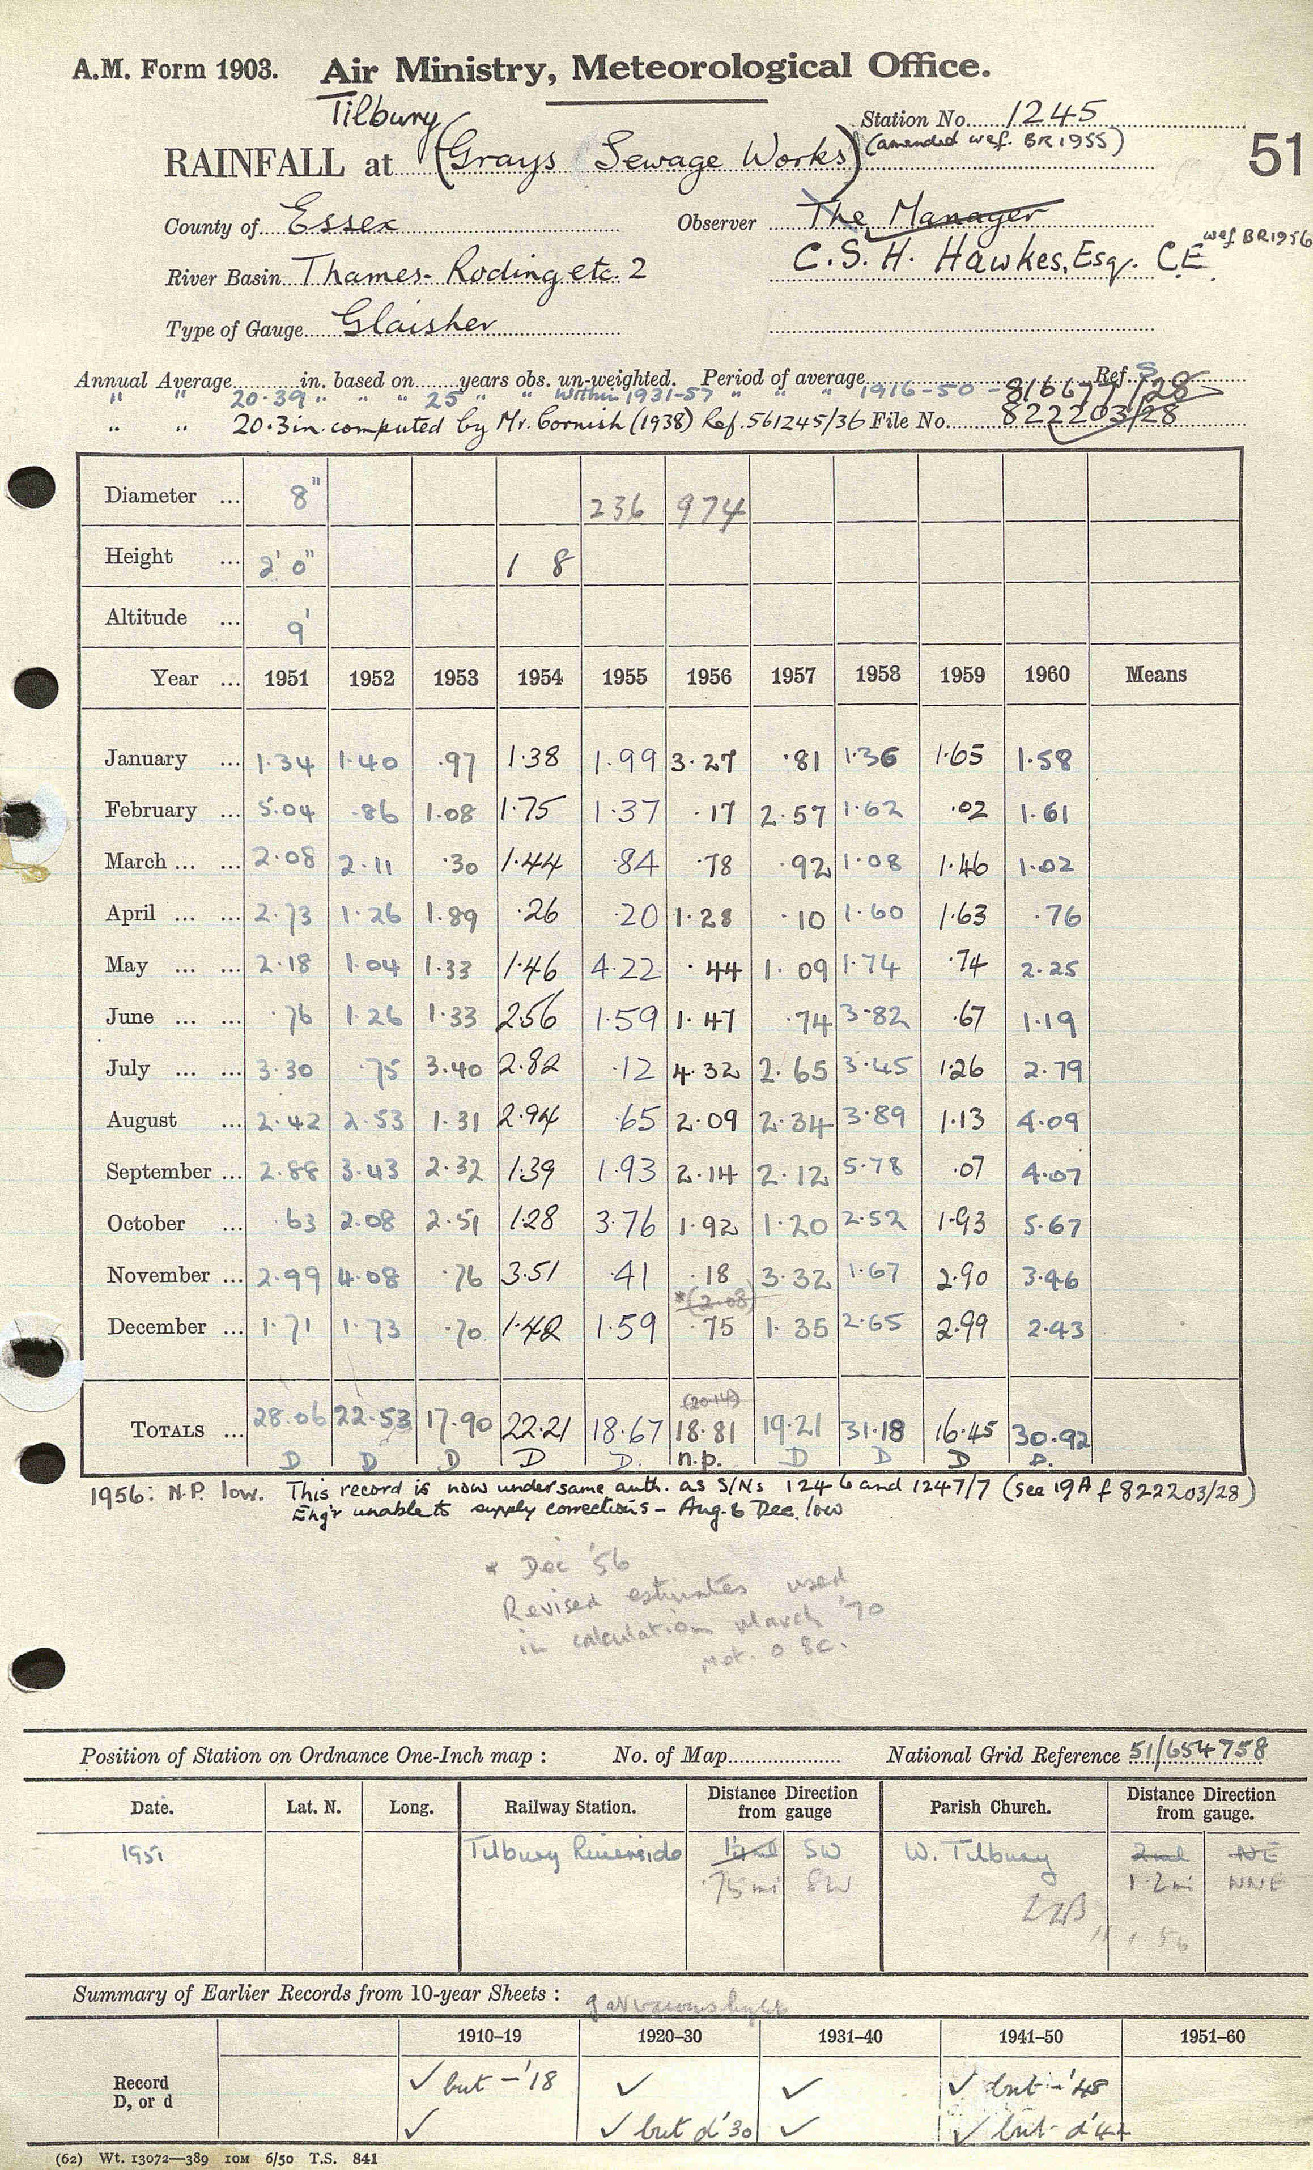 A.M. Form 1903. Air Ministry, Meteorological Office.
Tilbury
Station No. 1245
RAINFALL at (Grays Sewage Works) (amended wef. BR 1955)
51
County of Essex Observer The Manager
C.S.H. Hawkes, Esq. C.E. wef BR1956
River Basin Thames - Roding etc. 2
Type of Gauge Glaisher
Annual Average in. based on years obs. un-weighted. Period of average Ref. S
" " 20.39 " " " 25 " " within 1931-57 " " " 1916-50 - 816677/28
" " 20.3 in. computed by Mr. Cornish (1938) Ref. 561245/36 File No. 822203/28
Diameter ... 8" 236 974
Height ... 2' 0" 1 8
Altitude ... 9'
Year ... 1951 1952 1953 1954 1955 1956 1957 1958 1959 1960 Means
January ... 1.34 1.40 .97 1.38 1.99 3.27 .81 1.36 1.65 1.58
February ... 5.04 .86 1.08 1.75 1.37 .17 2.57 1.62 .02 1.61
March ... ... 2.08 2.11 .30 1.44 .84 .78 .92 1.08 1.46 1.02
April ... ... 2.73 1.26 1.89 .26 .20 1.28 .10 1.60 1.63 .76
May ... ... 2.18 1.04 1.33 1.46 4.22 .44 1.09 1.74 .74 2.25
June ... ... .76 1.26 1.33 2.56 1.59 1.47 .74 3.82 .67 1.19
July ... ... 3.30 .75 3.40 2.82 .12 4.32 2.65 3.45 1.26 2.79
August ... 2.42 2.53 1.31 2.94 .65 2.09 2.34 3.89 1.13 4.09
September ... 2.88 3.43 2.32 1.39 1.93 2.14 2.12 5.78 .07 4.07
October ... .63 2.08 2.51 1.28 3.76 1.92 1.20 2.52 1.93 5.67
November ... 2.99 4.08 .76 3.51 .41 .18 3.32 1.67 2.90 3.46
*(2.08)
December ... 1.71 1.73 .70 1.42 1.59 .75 1.35 2.65 2.99 2.43
(20.14)
TOTALS ... 28.06 22.53 17.90 22.21 18.67 18.81 19.21 31.18 16.45 30.92
D D D D D. n.p. D D D D.
1956: N.P. low. This record is now under same auth. as S/Ns 1246 and 1247/7 (see 19A f 822203/28)
Eng'r unable to supply corrections - Aug. & Dec. low
* Dec '56
Revised estimates used
in calculation March '70
Met. O 8c.
Position of Station on Ordnance One-Inch map : No. of Map National Grid Reference 51/654758
Date. Lat. N. Long. Railway Station. Distance from gauge Direction Parish Church. Distance from gauge. Direction
1951 Tilbury Riverside SW W. Tilbury 2ml NE
.75mi SW 1.2mi NNE
Summary of Earlier Records from 10-year Sheets :
1910–19 1920–30 1931–40 1941–50 1951–60
Record ✓ but - '18 ✓ ✓ ✓ but - '48
D, or d ✓ ✓ but d '30 ✓ ✓ but d '42
(62) Wt. 13072—389 10M 6/50 T.S. 841